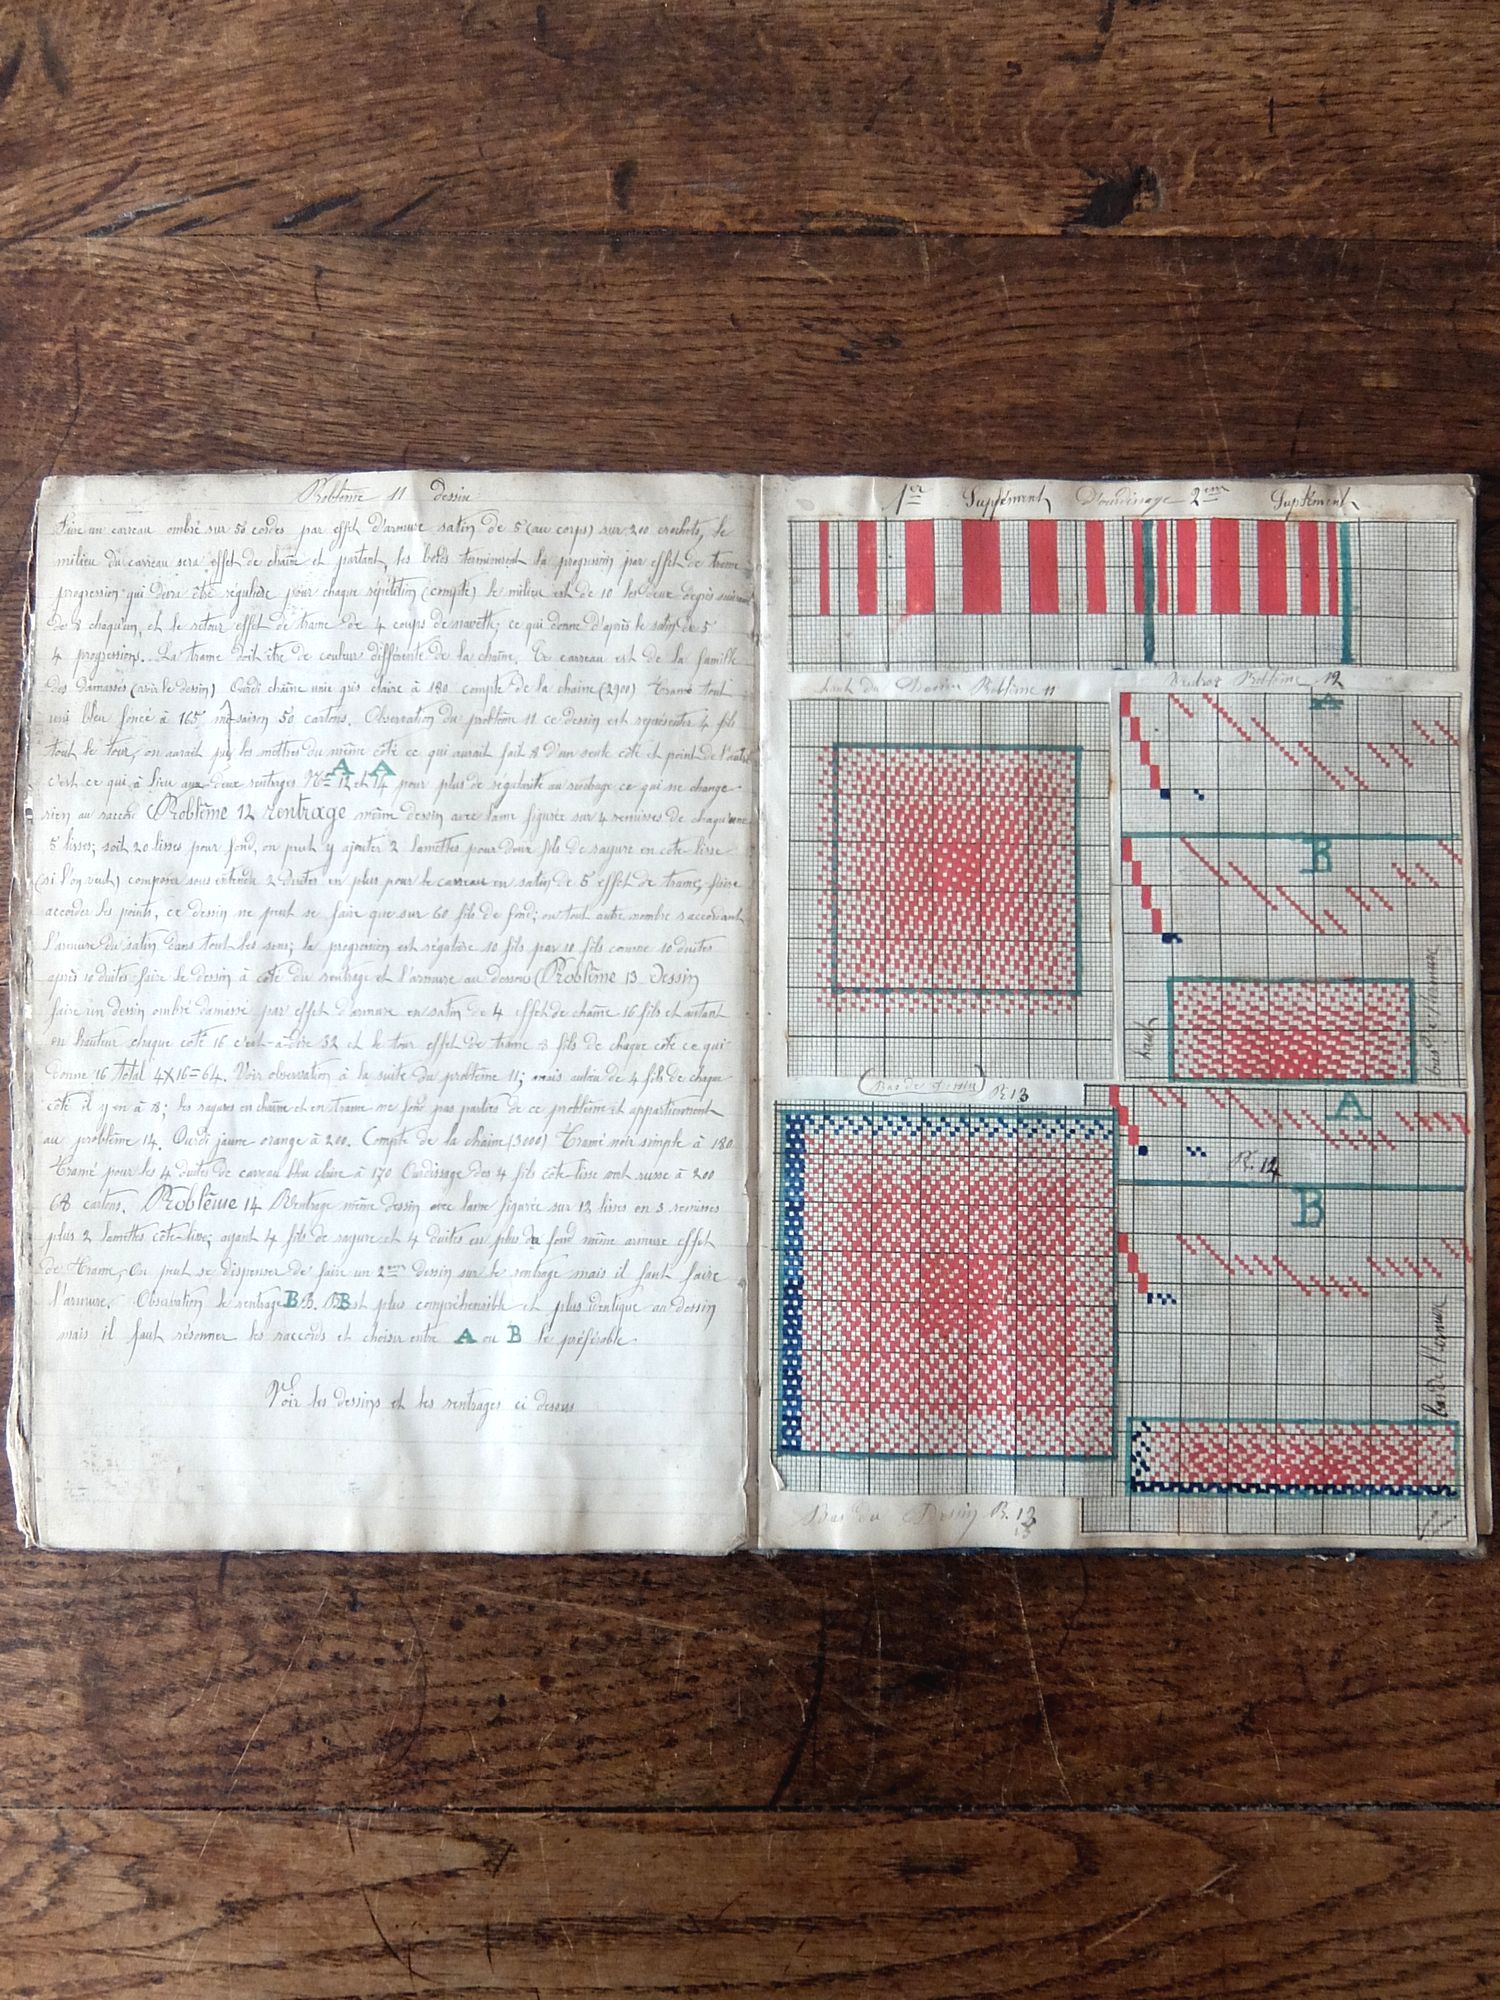 Problème 11 dessin
Faire un carreau ombré sur 50 cordes par effet d'armure satin de 5 (au corps) sur 200 crochets, le
milieu du carreau sera effet de chaîne et partant, les bords termineront la progression par effet de trame
progression qui devra être régulière pour chaque répétition (compté) le milieu est de 10 les deux degrés suivant
de 8 chaqu'un, et le retour effet de trame de 4 coups de navette; ce qui donne d'après le satin de 5
4 progressions. La trame doit être de couleur différente de la chaîne. Ce carreau est de la famille
des Damassés (voir le dessin) Ourdi chaîne unie gris claire à 180 compte de la chaîne (2900) tramé tout
uni bleu foncé à 165 50 cartons. Observation du problème 11 ce dessin est représenter 4 fils
tout le tour, on aurait pu les mettres du même côté ce qui aurait fait 8 d'un seule côté et point de l'autre
c'est ce qui à lieu aux deux rentrages Nos 12 A et 14 A pour plus de régularité au rentrage ce qui ne change
rien au raccord Problème 12 rentrage même dessin avec lame figurée sur 4 remisses de chaqu'une
5 lisses; soit 20 lisses pour fond, on peut y ajouter 2 lamettes pour deux fils de rayure en côte-lisse
(si l'on veut) composer sous entendu 2 duites en plus pour le carreau en satin de 5 effet de trame, faire
accorder les points, ce dessin ne peut se faire que sur 60 fils de fond; ou tout autre nombre s'accordant
l'armure du satin dans tout les sens; la progression est régulière 10 fils par 10 fils comme 10 duites
après 10 duites faire le dessin à côté du rentrage et l'armure au dessous (Problème 13 Dessin
faire un dessin ombré damassé par effet d'armure en satin de 4 effet de chaîne 16 fils et autant
en hauteur chaque côté 16 c'est-à-dire 32 et le tour effet de trame 8 fils de chaque côté ce qui
donne 16 total 4×16=64. Voir observation à la suite du problème 11; mais aulieu de 4 fils de chaque
côté il y en à 8; les rayures en chaîne et en trame ne font pas parties de ce problème et appartiennent
au problème 14. Ourdi jaune orange à 200. Compte de la chaîne (3000) tramé noir simple à 180
tramé pour les 4 duites de carreau bleu claire à 170 Ourdissage des 4 fils côte-lisse vert russe à 200
68 cartons. Problème 14 Rentrage même dessin avec lame figurée sur 12 lisses en 3 remisses
plus 2 lamettes côte-lisse; ayant 4 fils de rayure et 4 duites en plus du fond même armure effet
de trame. On peut se dispenser de faire un 2me dessin sur le rentrage mais il faut faire
l'armure. Observation le rentrage B est plus compréhensible et plus identique au dessin
mais il faut résonner les raccords et choisir entre A ou B le préférable
Voir les dessins et les rentrages ci dessus
1er Supplément D'ourdissage 2eme Supplément
haut du Dessin Problème 11
Rentrage Problème 12
A
B
haut
bas de l'armure
(Bas du Dessin) P. 13
A
P. 14
B
bas de l'armure
Bas du Dessin P. 13